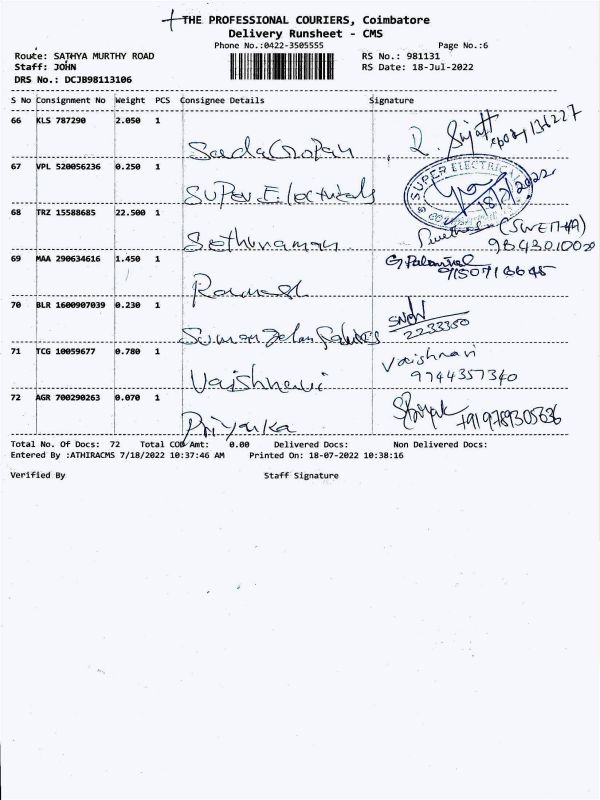 THE PROFESSIONAL COURIERS, Coimbatore
Delivery Runsheet - CMS
Phone No.:0422-3505555 Page No.:6
Route: SATHYA MURTHY ROAD RS No.: 981131
Staff: JOHN RS Date: 18-Jul-2022
DRS No.: DCJB98113106
S No Consignment No Weight PCS Consignee Details Signature
66 KLS 787290 2.050 1
SadaGopan
67 VPL 520056236 0.250 1
SUPER ELECTRICAL
Super Electricals 18/7/2022
68 TRZ 15588685 22.500 1
Sethuraman (SWETHA)
69 MAA 290634616 1.450 1
Ramesh
70 BLR 1600907039 0.230 1
Suman
2233350
71 TCG 10059677 0.780 1 Vaishnavi
Vaishnavi 9744357340
72 AGR 700290263 0.070 1
Priyanka +919789305636
Total No. Of Docs: 72 Total COD Amt: 0.00 Delivered Docs: Non Delivered Docs:
Entered By :ATHIRACMS 7/18/2022 10:37:46 AM Printed On: 18-07-2022 10:38:16
Verified By Staff Signature